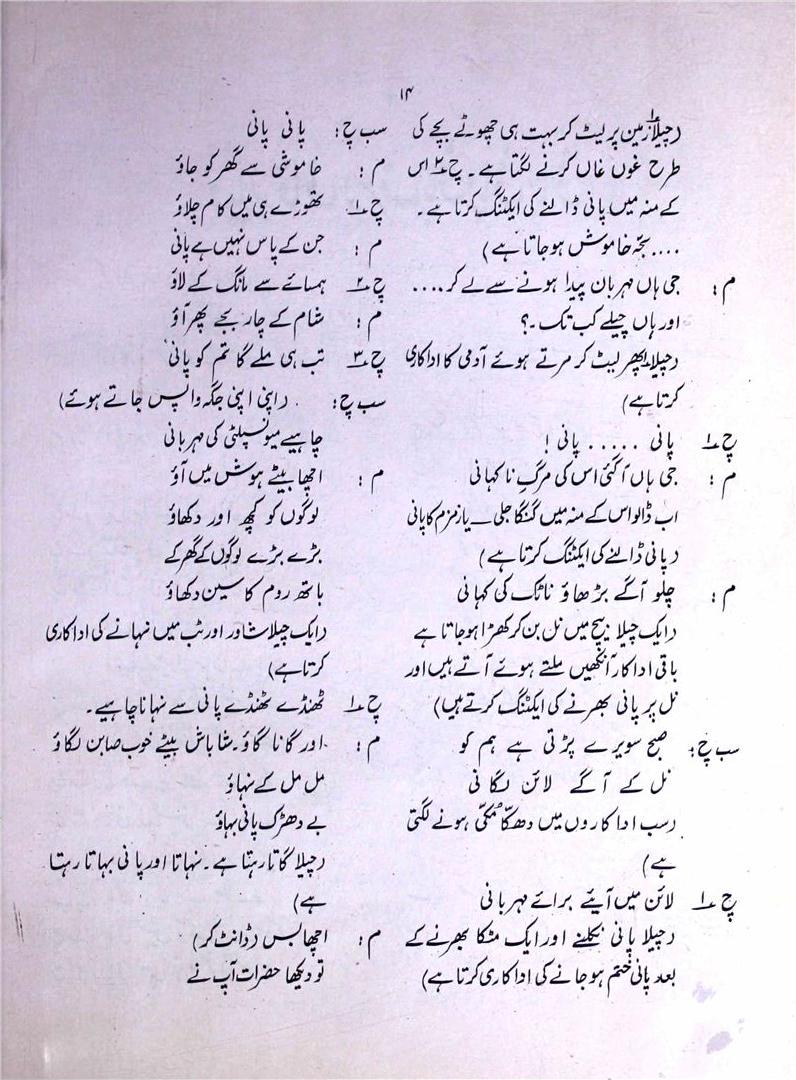 ۱۴
(چیلا ۱ زمین پر لیٹ کر بہت ہی چھوٹے بچے کی
طرح غوں غاں کرنے لگتا ہے۔ چ ۲ اس
کے منہ میں پانی ڈالنے کی ایکٹنگ کرتا ہے۔
.... بچّہ خاموش ہو جاتا ہے)
م: جی ہاں مہربان پیدا ہونے سے لے کر ....
اور ہاں چیلے کب تک۔؟
(چیلا ۱ پھر لیٹ کر مرتے ہوئے آدمی کا اداکاری
کرتا ہے)
چ ۱ پانی ..... پانی!
م: جی ہاں آ گئی اس کی مرگِ ناگہانی
اب ڈالو اس کے منہ میں گنگا جلی — یا زمزم کا پانی
(پانی ڈالنے کی ایکٹنگ کرتا ہے)
م: چلو آگے بڑھاؤ ناٹک کی کہانی
(ایک چیلا بیچ میں نل بن کر کھڑا ہو جاتا ہے
باقی اداکار آنکھیں ملتے ہوئے آتے ہیں اور
نل پر پانی بھرنے کی ایکٹنگ کرتے ہیں)
سب چ: صبح سویرے پڑتی ہے ہم کو
نل کے آگے لائن لگانی
(سب اداکاروں میں دھکّا مُکّی ہونے لگتی
ہے)
چ ۱ لائن میں آیئے برائے مہربانی
(چیلا پانی نکلنے اور ایک مٹکا بھرنے کے
بعد پانی ختم ہو جانے کی اداکاری کرتا ہے)
سب چ: پانی پانی
م: خاموشی سے گھر کو جاؤ
چ ۱ تھوڑے ہی میں کام چلاؤ
م: جن کے پاس نہیں ہے پانی
چ ۲ ہمسائے سے مانگ کے لاؤ
م: شام کے چار بجے پھر آؤ
چ ۳ تب ہی ملے گا تم کو پانی
سب چ: (اپنی اپنی جگہ واپس جاتے ہوئے)
چاہیے میونسپلٹی کی مہربانی
م: اچھا بیٹے ہوش میں آؤ
لوگوں کو کچھ اور دکھاؤ
بڑے بڑے لوگوں کے گھر کے
باتھ روم کا سین دکھاؤ
(ایک چیلا شاور اور ٹب میں نہانے کی اداکاری
کرتا ہے)
چ ۱ ٹھنڈے ٹھنڈے پانی سے نہانا چاہیے۔
م: اور گانا گاؤ۔ شاباش بیٹے خوب صابن لگاؤ
مل مل کے نہاؤ
بے دھڑک پانی بہاؤ
(چیلا گاتا رہتا ہے۔ نہاتا اور پانی بہاتا رہتا
ہے)
م: اچھا بس (ڈانٹ کر)
تو دیکھا حضرات آپ نے